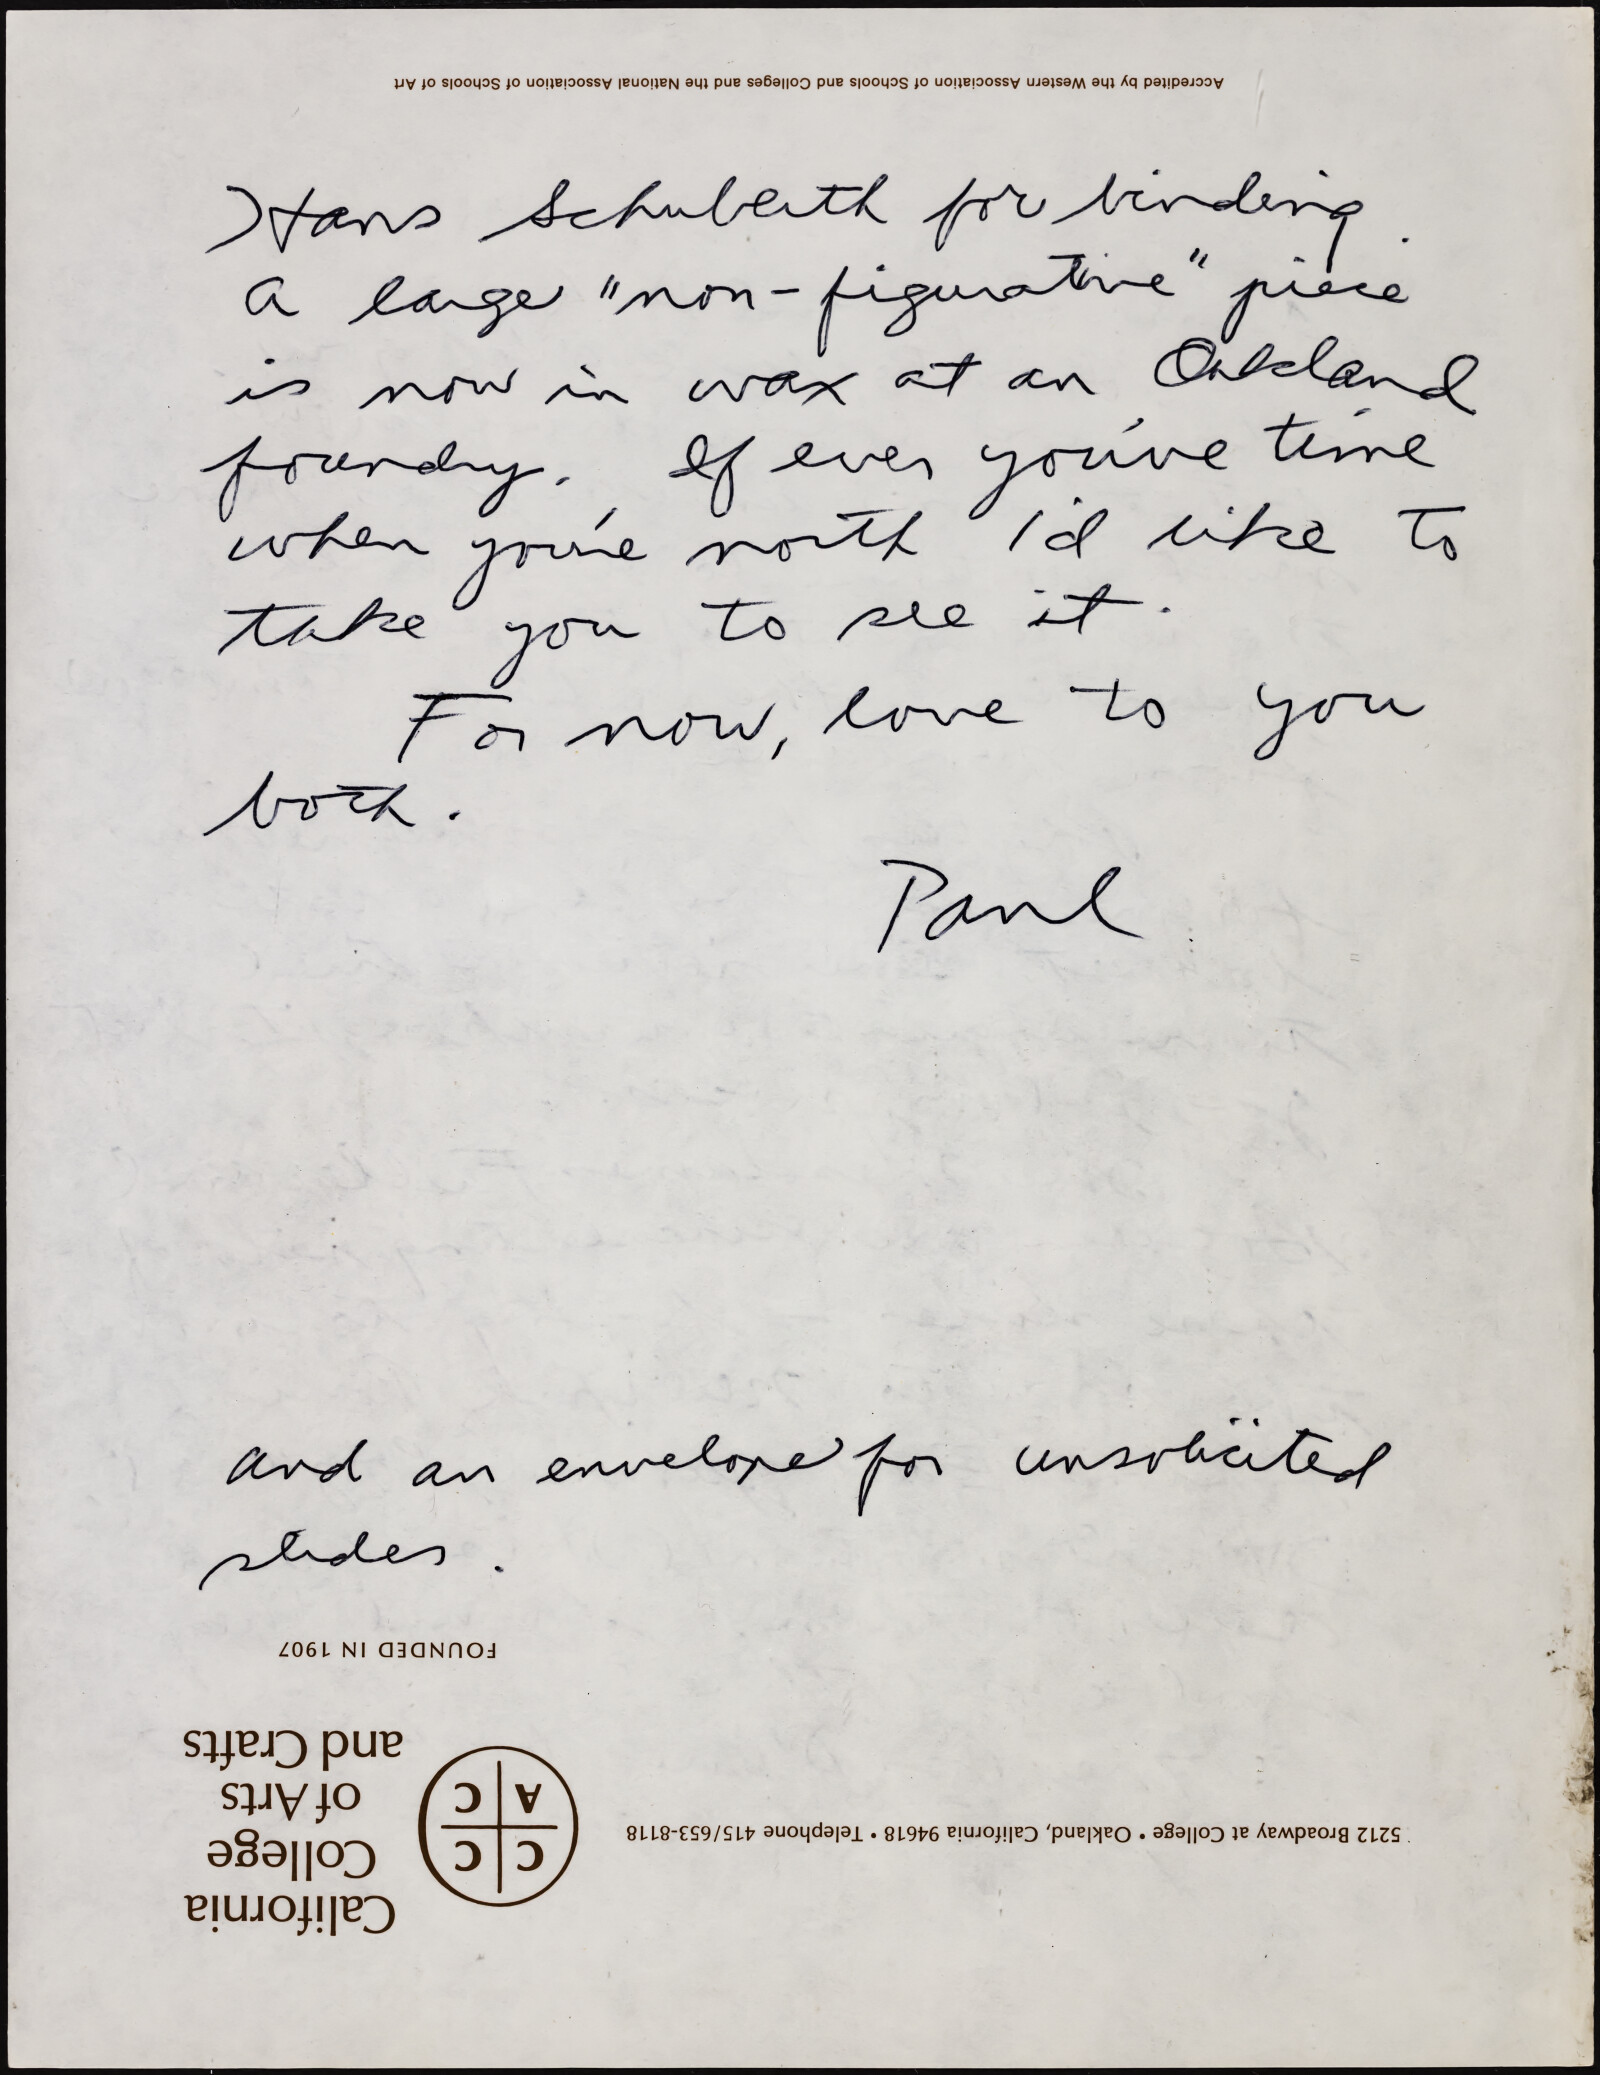 Accredited by the Western Association of Schools and Colleges and the National Association of Schools of Art
Hans Schuberth for binding.
A large "non-figurative" piece
is now in wax at an Oakland
foundry. If ever you've time
when you're north I'd like to
take you to see it.
For now, love to you
both.
Paul
and an envelope for unsolicited
slides.
FOUNDED IN 1907
California
College
of Arts
and Crafts
C C
A C
5212 Broadway at College • Oakland, California 94618 • Telephone 415/653-8118